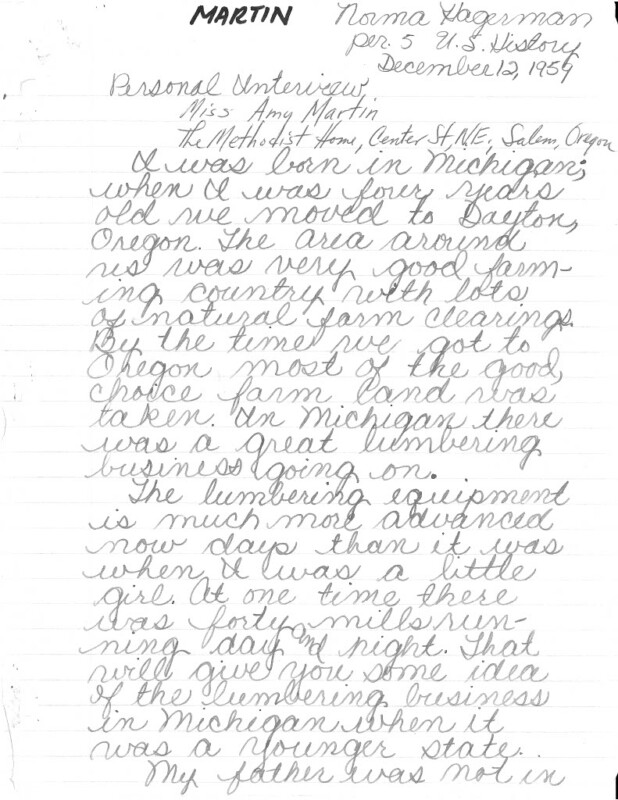 MARTIN Norma Hagerman
per. 5 U.S. History
December 12, 1959
Personal Interview,
Miss Amy Martin
The Methodist Home, Center St, N.E., Salem, Oregon
I was born in Michigan;
when I was four years
old we moved to Dayton,
Oregon. The area around
us was very good farm-
ing country with lots
of natural farm clearings.
By the time we got to
Oregon most of the good,
choice farm land was
taken. In Michigan there
was a great lumbering
business going on.
The lumbering equipment
is much more advanced
now days than it was
when I was a little
girl. At one time there
was forty mills run-
ning day and night. That
will give you some idea
of the lumbering business
in Michigan when it
was a younger state.
My father was not in